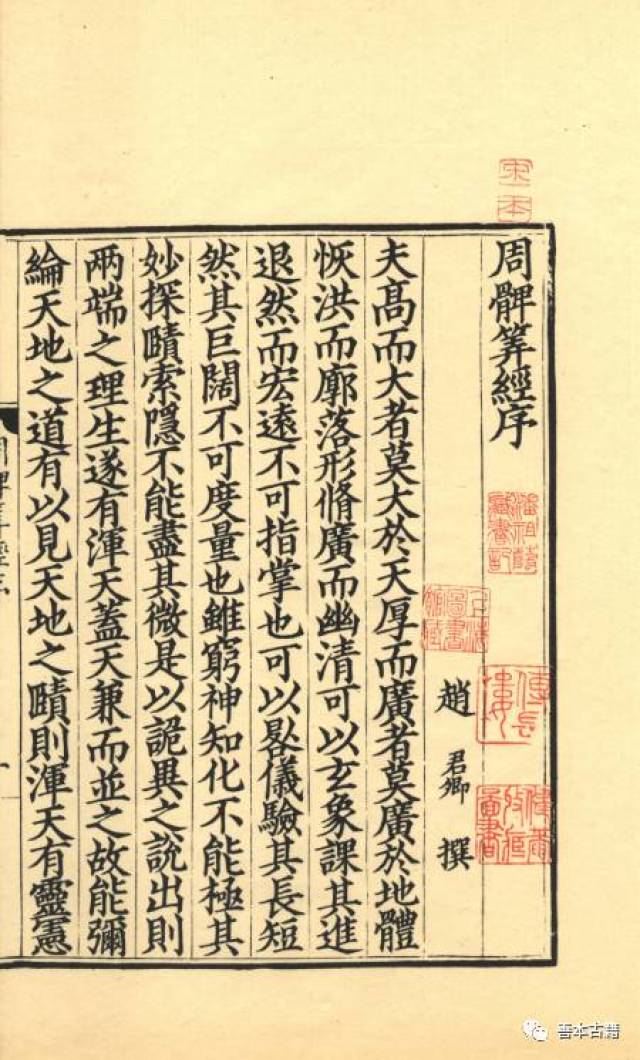 宋本
周髀筭經序
潘祖蔭藏書記
上海圖書館藏
趙君卿撰
夫高而大者莫大於天厚而廣者莫廣於地體
恢洪而廓落形脩廣而幽清可以玄象課其進
退然而宏遠不可指掌也可以晷儀驗其長短
然其巨闊不可度量也雖窮神知化不能極其
妙探賾索隱不能盡其微是以詭異之說出則
兩端之理生遂有渾天蓋天兼而並之故能彌
綸天地之道有以見天地之賾則渾天有靈憲
善本古籍